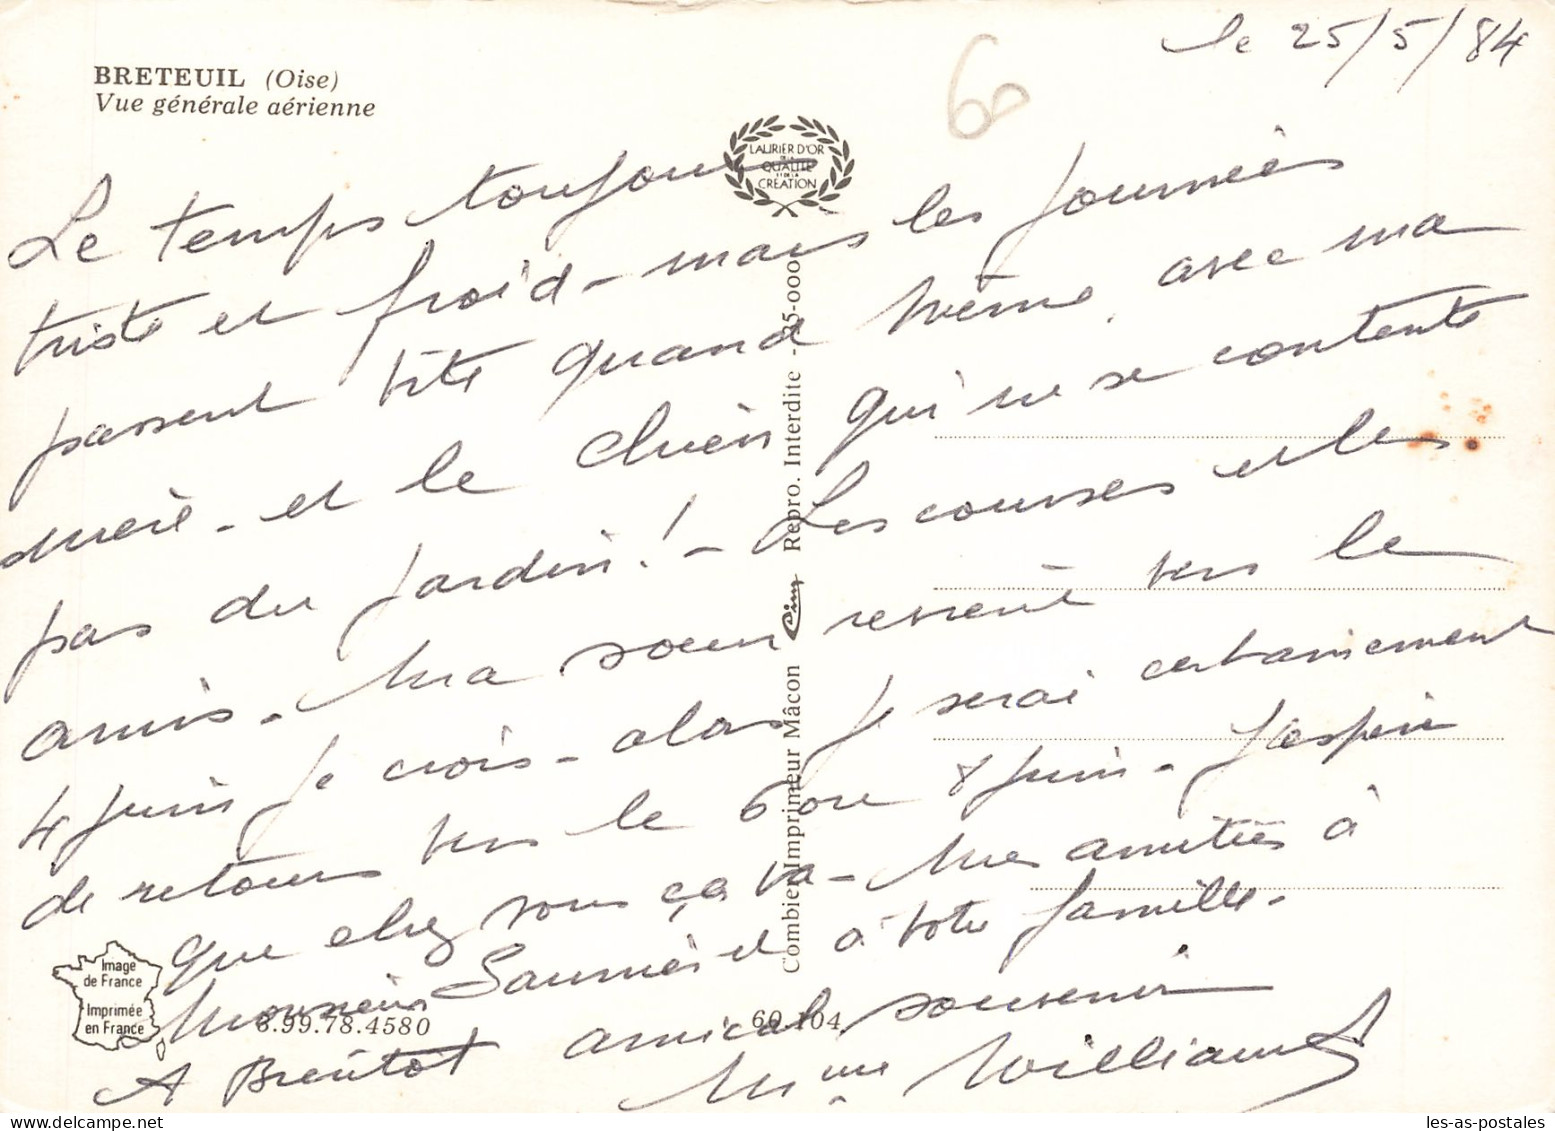 le 25/5/84
BRETEUIL (Oise)
Vue générale aérienne
60
LAURIER D'OR
DE LA
QUALITE
ET DE LA
CREATION
Le temps toujours
triste et froid - mais les journées
passent vite quand même, avec ma
mère - et le chien qui ne se contente
pas du jardin ! - Les courses et les
amis - Ma soeur revient vers le
4 juin je crois - alors je serai certainement
de retour vers le 6 ou 8 juin - J'espère
que chez vous ça va - Mes amitiés à
Monsieur et à votre famille -
A Bientôt amical souvenir
Mme Williams
Combier Imprimeur Mâcon Cim Repro. Interdite - 25-000
Image
de France
Imprimée
en France
6.99.78.4580
60.104
les-as-postales